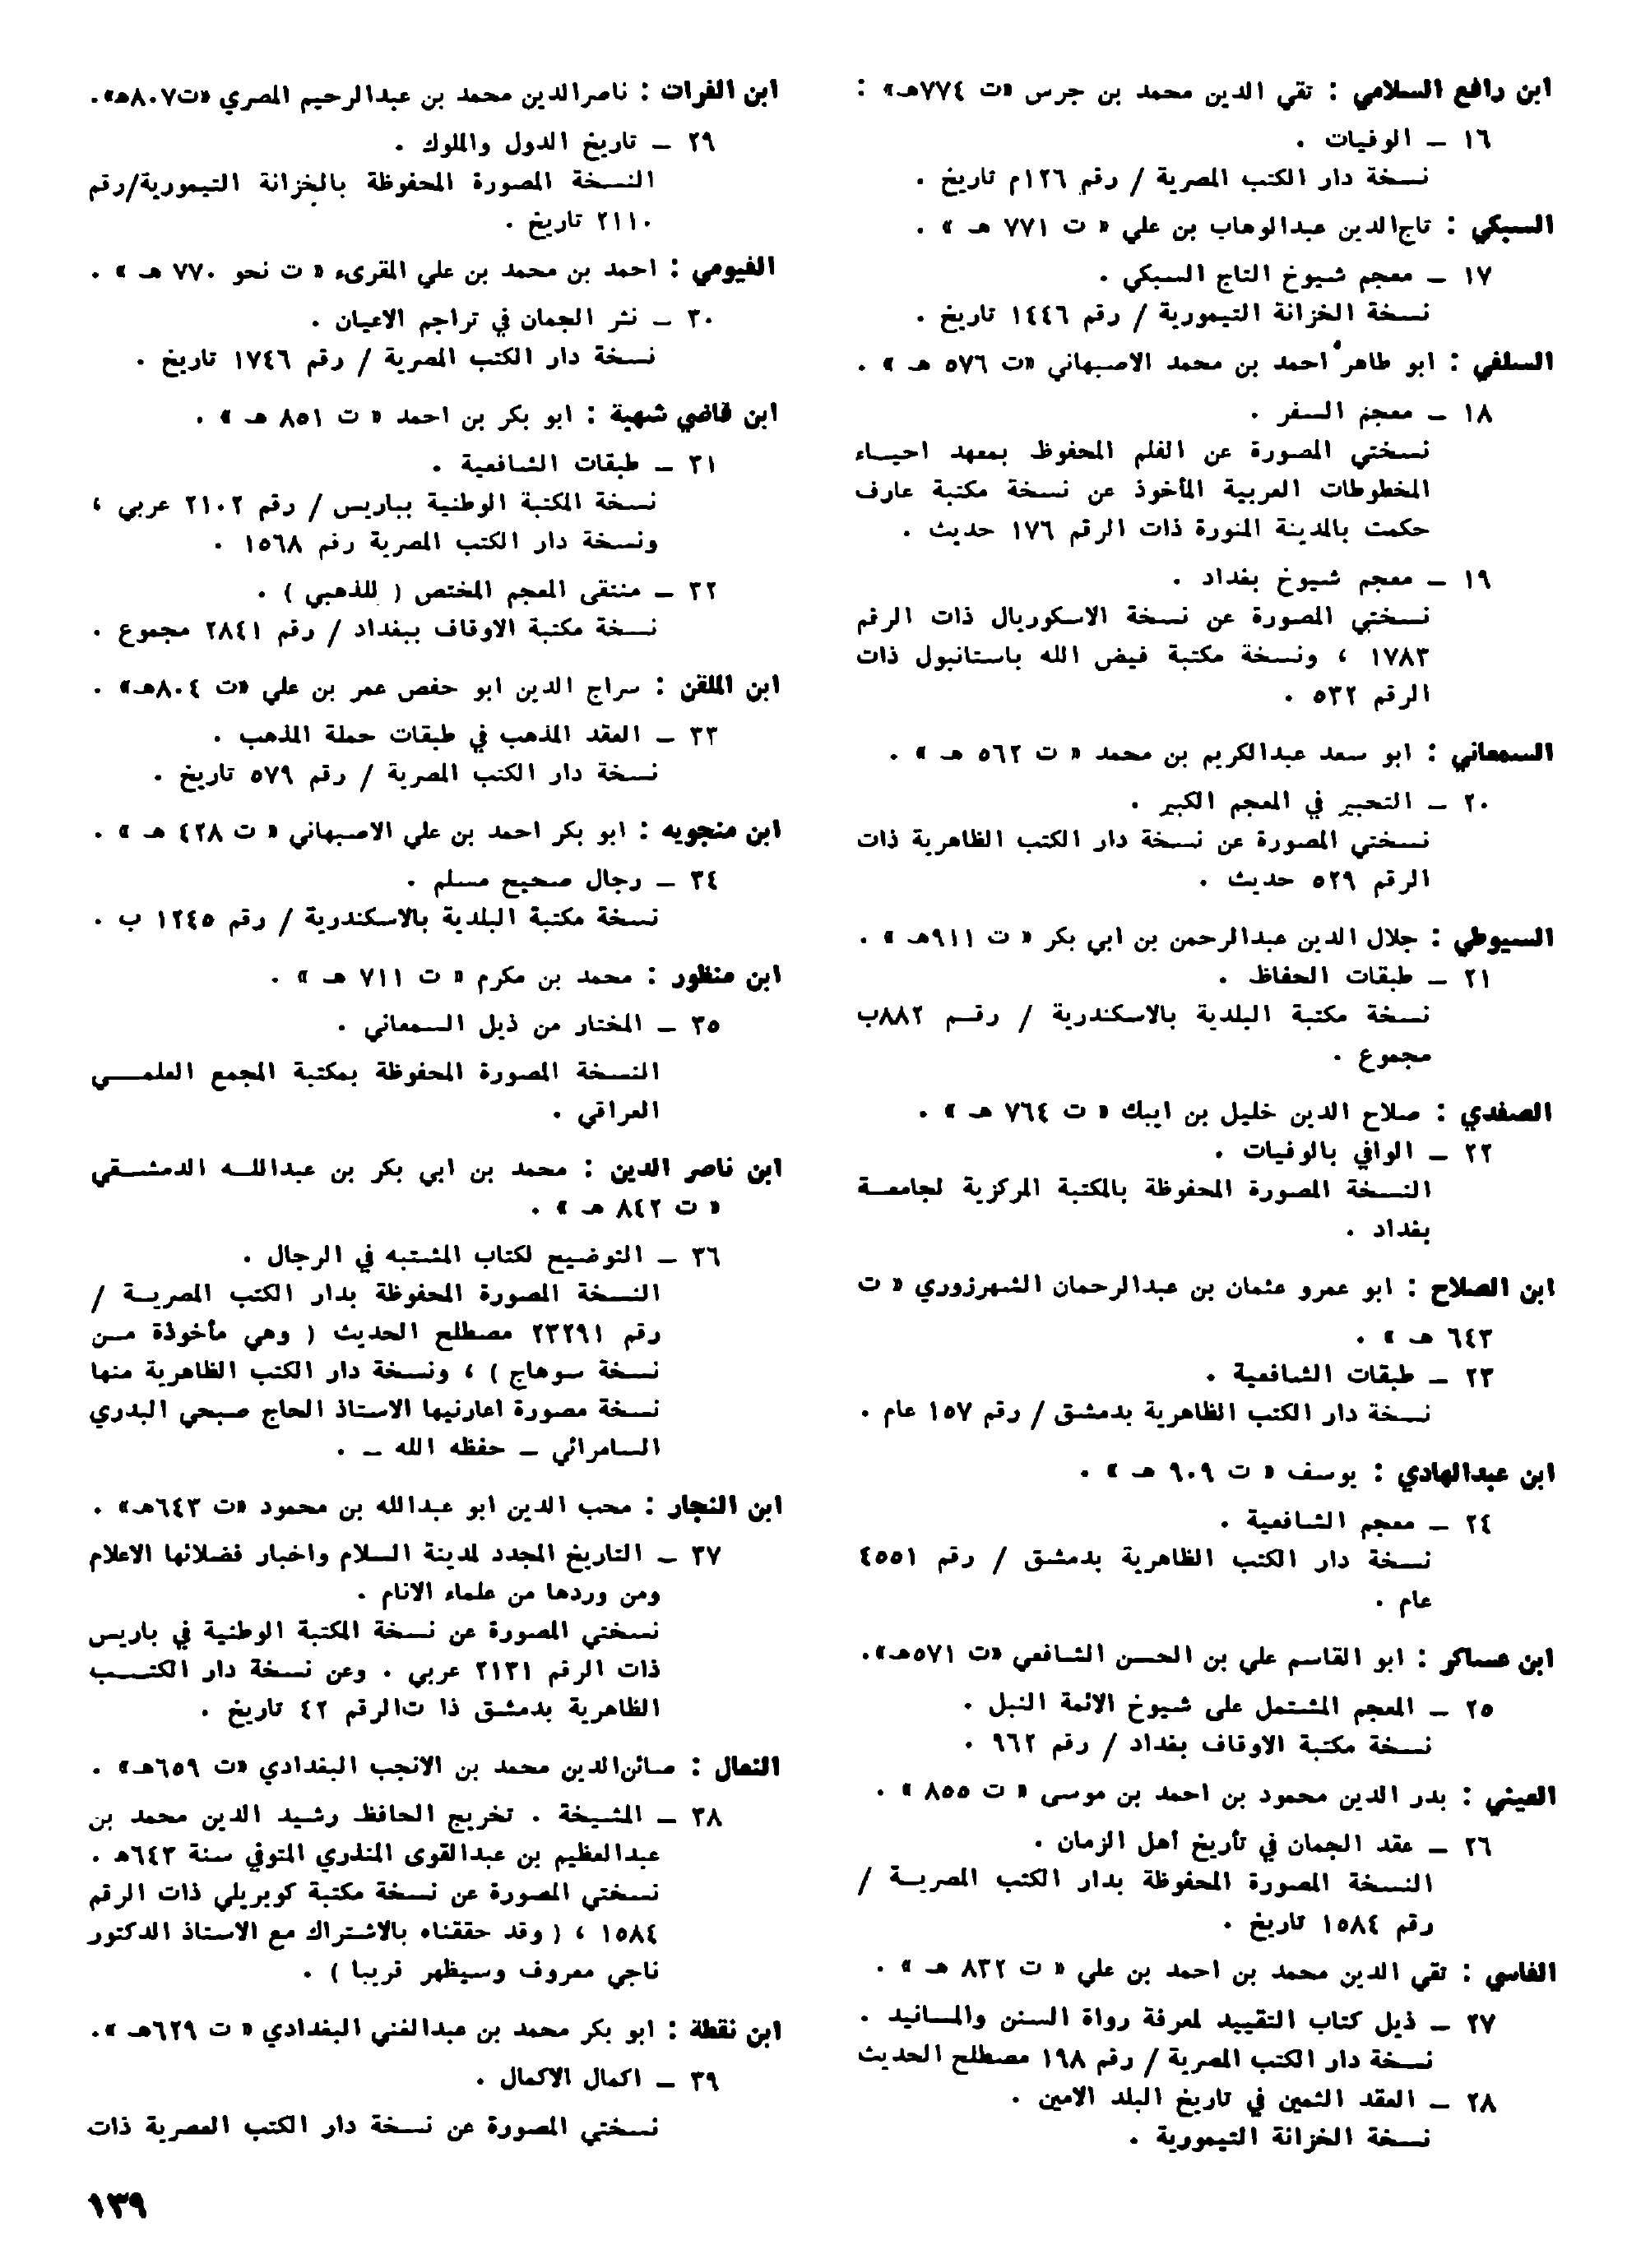 ابن رافع السلامي : تقي الدين محمد بن جرس «ت ٧٧٤هـ» :
١٦ ـ الوفيات .
نسخة دار الكتب المصرية / رقم ١٢٦م تاريخ .
السبكي : تاج‌الدين عبدالوهاب بن علي « ت ٧٧١ هـ » .
١٧ ـ معجم شيوخ التاج السبكي .
نسخة الخزانة التيمورية / رقم ١٤٤٦ تاريخ .
السلفي : ابو طاهر احمد بن محمد الاصبهاني «ت ٥٧٦ هـ » .
١٨ ـ معجم السفر .
نسختي المصورة عن الفلم المحفوظ بمعهد احياء
المخطوطات العربية المأخوذ عن نسخة مكتبة عارف
حكمت بالمدينة المنورة ذات الرقم ١٧٦ حديث .
١٩ ـ معجم شيوخ بغداد .
نسختي المصورة عن نسخة الاسكوريال ذات الرقم
١٧٨٣ ، ونسخة مكتبة فيض الله باستانبول ذات
الرقم ٥٣٢ .
السمعاني : ابو سعد عبدالكريم بن محمد « ت ٥٦٢ هـ » .
٢٠ ـ التحبير في المعجم الكبير .
نسختي المصورة عن نسخة دار الكتب الظاهرية ذات
الرقم ٥٢٩ حديث .
السيوطي : جلال الدين عبدالرحمن بن ابي بكر « ت ٩١١هـ » .
٢١ ـ طبقات الحفاظ .
نسخة مكتبة البلدية بالاسكندرية / رقم ٨٨٢ب
مجموع .
الصفدي : صلاح الدين خليل بن ايبك « ت ٧٦٤ هـ » .
٢٢ ـ الوافي بالوفيات .
النسخة المصورة المحفوظة بالمكتبة المركزية لجامعة
بغداد .
ابن الصلاح : ابو عمرو عثمان بن عبدالرحمان الشهرزوري « ت
٦٤٣ هـ » .
٢٣ ـ طبقات الشافعية .
نسخة دار الكتب الظاهرية بدمشق / رقم ١٥٧ عام .
ابن عبدالهادي : يوسف « ت ٩٠٩ هـ » .
٢٤ ـ معجم الشافعية .
نسخة دار الكتب الظاهرية بدمشق / رقم ٤٥٥١
عام .
ابن عساكر : ابو القاسم علي بن الحسن الشافعي «ت ٥٧١هـ».
٢٥ ـ المعجم المشتمل على شيوخ الائمة النبل .
نسخة مكتبة الاوقاف بغداد / رقم ٩٦٢ .
العيني : بدر الدين محمود بن احمد بن موسى « ت ٨٥٥ » .
٢٦ ـ عقد الجمان في تأريخ أهل الزمان .
النسخة المصورة المحفوظة بدار الكتب المصرية /
رقم ١٥٨٤ تاريخ .
الفاسي : تقي الدين محمد بن احمد بن علي « ت ٨٣٢ هـ » .
٢٧ ـ ذيل كتاب التقييد لمعرفة رواة السنن والمسانيد .
نسخة دار الكتب المصرية / رقم ١٩٨ مصطلح الحديث
٢٨ ـ العقد الثمين في تاريخ البلد الامين .
نسخة الخزانة التيمورية .
ابن الفرات : ناصرالدين محمد بن عبدالرحيم المصري «ت٨٠٧هـ».
٢٩ ـ تاريخ الدول والملوك .
النسخة المصورة المحفوظة بالخزانة التيمورية/رقم
٢١١٠ تاريخ .
الفيومي : احمد بن محمد بن علي المقرىء « ت نحو ٧٧٠ هـ » .
٣٠ ـ نثر الجمان في تراجم الاعيان .
نسخة دار الكتب المصرية / رقم ١٧٤٦ تاريخ .
ابن قاضي شهبة : ابو بكر بن احمد « ت ٨٥١ هـ » .
٣١ ـ طبقات الشافعية .
نسخة المكتبة الوطنية بباريس / رقم ٢١٠٢ عربي ،
ونسخة دار الكتب المصرية رقم ١٥٦٨ .
٣٢ ـ منتقى المعجم المختص ( للذهبي ) .
نسخة مكتبة الاوقاف ببغداد / رقم ٢٨٤١ مجموع .
ابن الملقن : سراج الدين ابو حفص عمر بن علي «ت ٨٠٤هـ» .
٣٣ ـ العقد المذهب في طبقات حملة المذهب .
نسخة دار الكتب المصرية / رقم ٥٧٩ تاريخ .
ابن منجويه : ابو بكر احمد بن علي الاصبهاني « ت ٤٢٨ هـ » .
٣٤ ـ رجال صحيح مسلم .
نسخة مكتبة البلدية بالاسكندرية / رقم ١٢٤٥ ب .
ابن منظور : محمد بن مكرم « ت ٧١١ هـ » .
٣٥ ـ المختار من ذيل السمعاني .
النسخة المصورة المحفوظة بمكتبة المجمع العلمي
العراقي .
ابن ناصر الدين : محمد بن ابي بكر بن عبدالله الدمشقي
« ت ٨٤٢ هـ » .
٣٦ ـ التوضيح لكتاب المشتبه في الرجال .
النسخة المصورة المحفوظة بدار الكتب المصرية /
رقم ٢٣٢٩١ مصطلح الحديث ( وهي مأخوذة من
نسخة سوهاج ) ، ونسخة دار الكتب الظاهرية منها
نسخة مصورة اعارنيها الاستاذ الحاج صبحي البدري
السامرائي ـ حفظه الله ـ .
ابن النجار : محب الدين ابو عبدالله بن محمود «ت ٦٤٣هـ» .
٣٧ ـ التاريخ المجدد لمدينة السلام واخبار فضلائها الاعلام
ومن وردها من علماء الانام .
نسختي المصورة عن نسخة المكتبة الوطنية في باريس
ذات الرقم ٢١٣١ عربي . وعن نسخة دار الكتب
الظاهرية بدمشق ذا ت‌الرقم ٤٢ تاريخ .
النعال : صائن‌الدين محمد بن الانجب البغدادي «ت ٦٥٩هـ» .
٣٨ ـ المشيخة . تخريج الحافظ رشيد الدين محمد بن
عبدالعظيم بن عبدالقوى المنذري المتوفي سنة ٦٤٣هـ .
نسختي المصورة عن نسخة مكتبة كوبريلي ذات الرقم
١٥٨٤ ، ( وقد حققناه بالاشتراك مع الاستاذ الدكتور
ناجي معروف وسيظهر قريبا ) .
ابن نقطة : ابو بكر محمد بن عبدالغني البغدادي « ت ٦٢٩هـ ».
٣٩ ـ اكمال الاكمال .
نسختي المصورة عن نسخة دار الكتب المصرية ذات
١٣٩